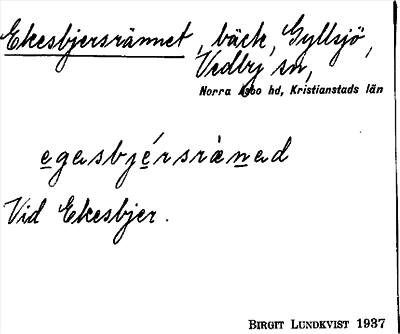 Ekesbjersrännet, bäck, Gyllsjö,
Vedby sn,
Norra Åsbo hd, Kristianstads län
egasbjérsrànad
Vid Ekesbjer.
BIRGIT LUNDKVIST 1937